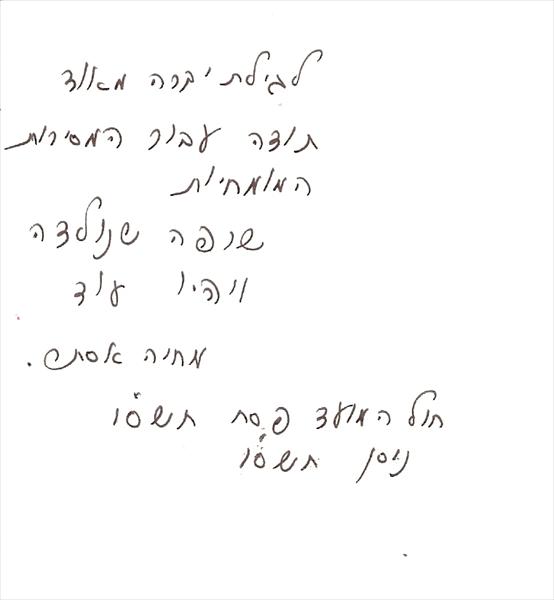 לגילת יקרה מאוד
תודה עבור המסירות
המומחיות
שנולדה
ויהיו עוד
מחיה אסתר.
חול המועד פסח תשס"ו
ניסן תשס"ו